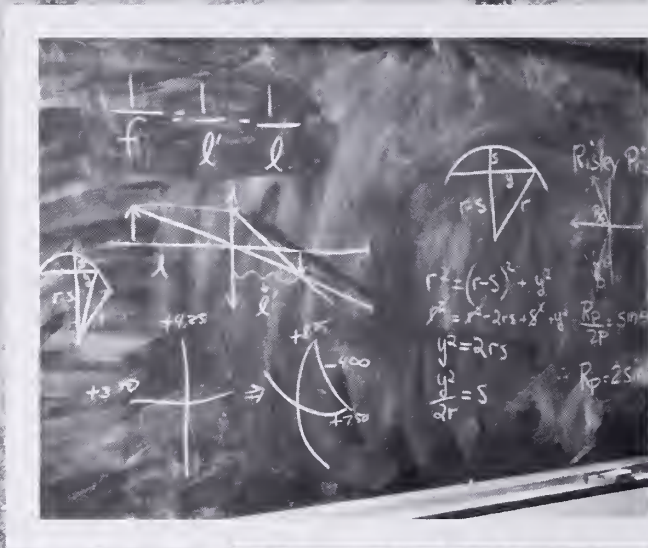 1/f = 1/l' - 1/l
l
l'
r-s
+4.25
⇒
-400
+750
s
y
r-s
r
Risky
r² = (r-s)² + y²
r² = r² - 2rs + s² + y²
y² = 2rs
y²/2r = s
Rp/2P = sin
∴ Rp = 2 sin